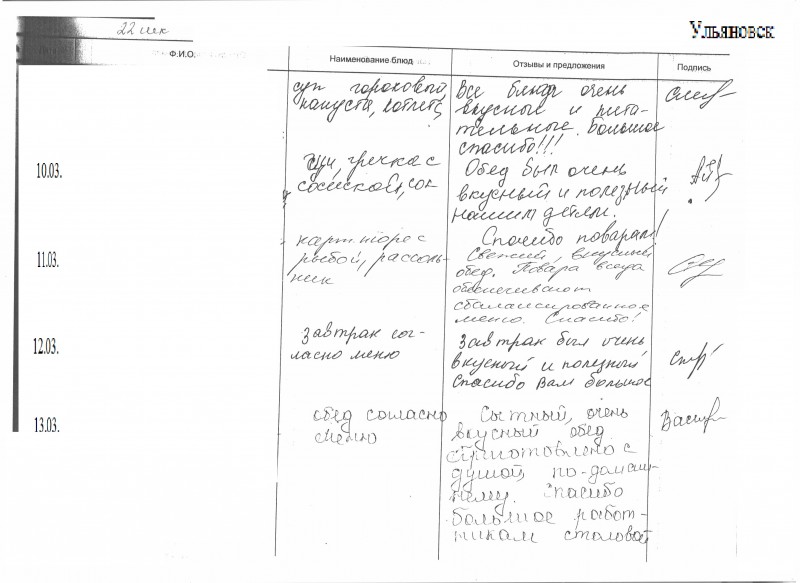 22 шк
Ульяновск
Ф.И.О.
Наименование блюд
Отзывы и предложения
Подпись
суп гороховый,
капуста, котлета,
Все блюда очень
вкусные и пита-
тельные. Большое
спасибо!!!
10.03.
щи, гречка с
сосиской, сок
Обед был очень
вкусный и полезный
нашим детям.
Спасибо поварам!
11.03.
карт. пюре с
рыбой, рассоль-
ник
Свежий, вкусный
обед. Повара всегда
обеспечивают
сбалансированное
меню. Спасибо!
12.03.
завтрак сог-
ласно меню
Завтрак был очень
вкусный и полезный
спасибо Вам большое
13.03.
обед согласно
меню
Сытный, очень
вкусный обед
приготовлено с
душой, по-домаш-
нему. Спасибо
большое работ-
никам столовой